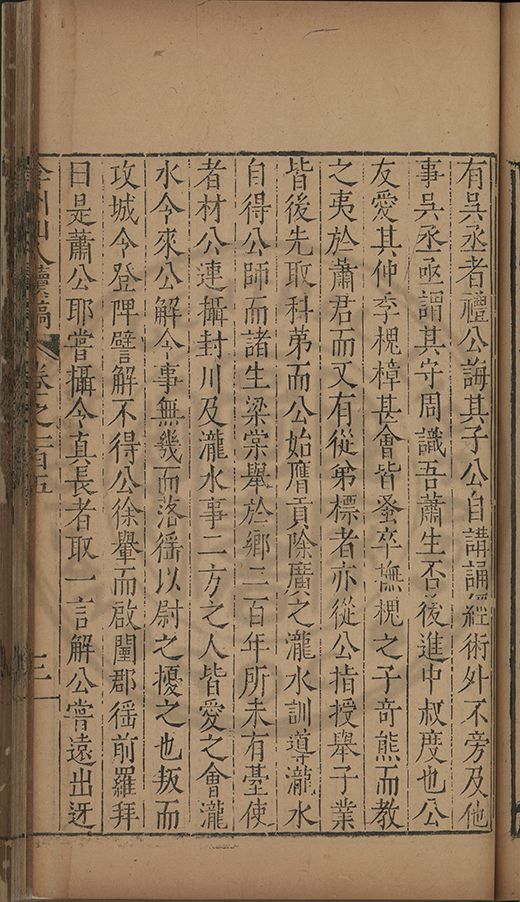 有吳丞者禮公誨其子公自講誦經術外不旁及他
事吳丞亟謂其守周識吾蕭生否後進中叔度也公
友愛其仲季槐樟甚會皆蚤卒撫槐之子竒熊而教
之夷於蕭君而又有從弟標者亦從公指授舉子業
皆後先取科第而公始膺貢除廣之瀧水訓導瀧水
自得公師而諸生梁棠舉於鄉二百年所未有臺使
者材公連攝封川及瀧水事二方之人皆愛之會瀧
水令來公解令事無幾而落徭以尉之擾之也叛而
攻城令登陴譬解不得公徐轝而啟闉郡徭前羅拜
曰是蕭公耶嘗攝令真長者取一言解公嘗遠出迓
弇州山人續稿 卷之一百五 三